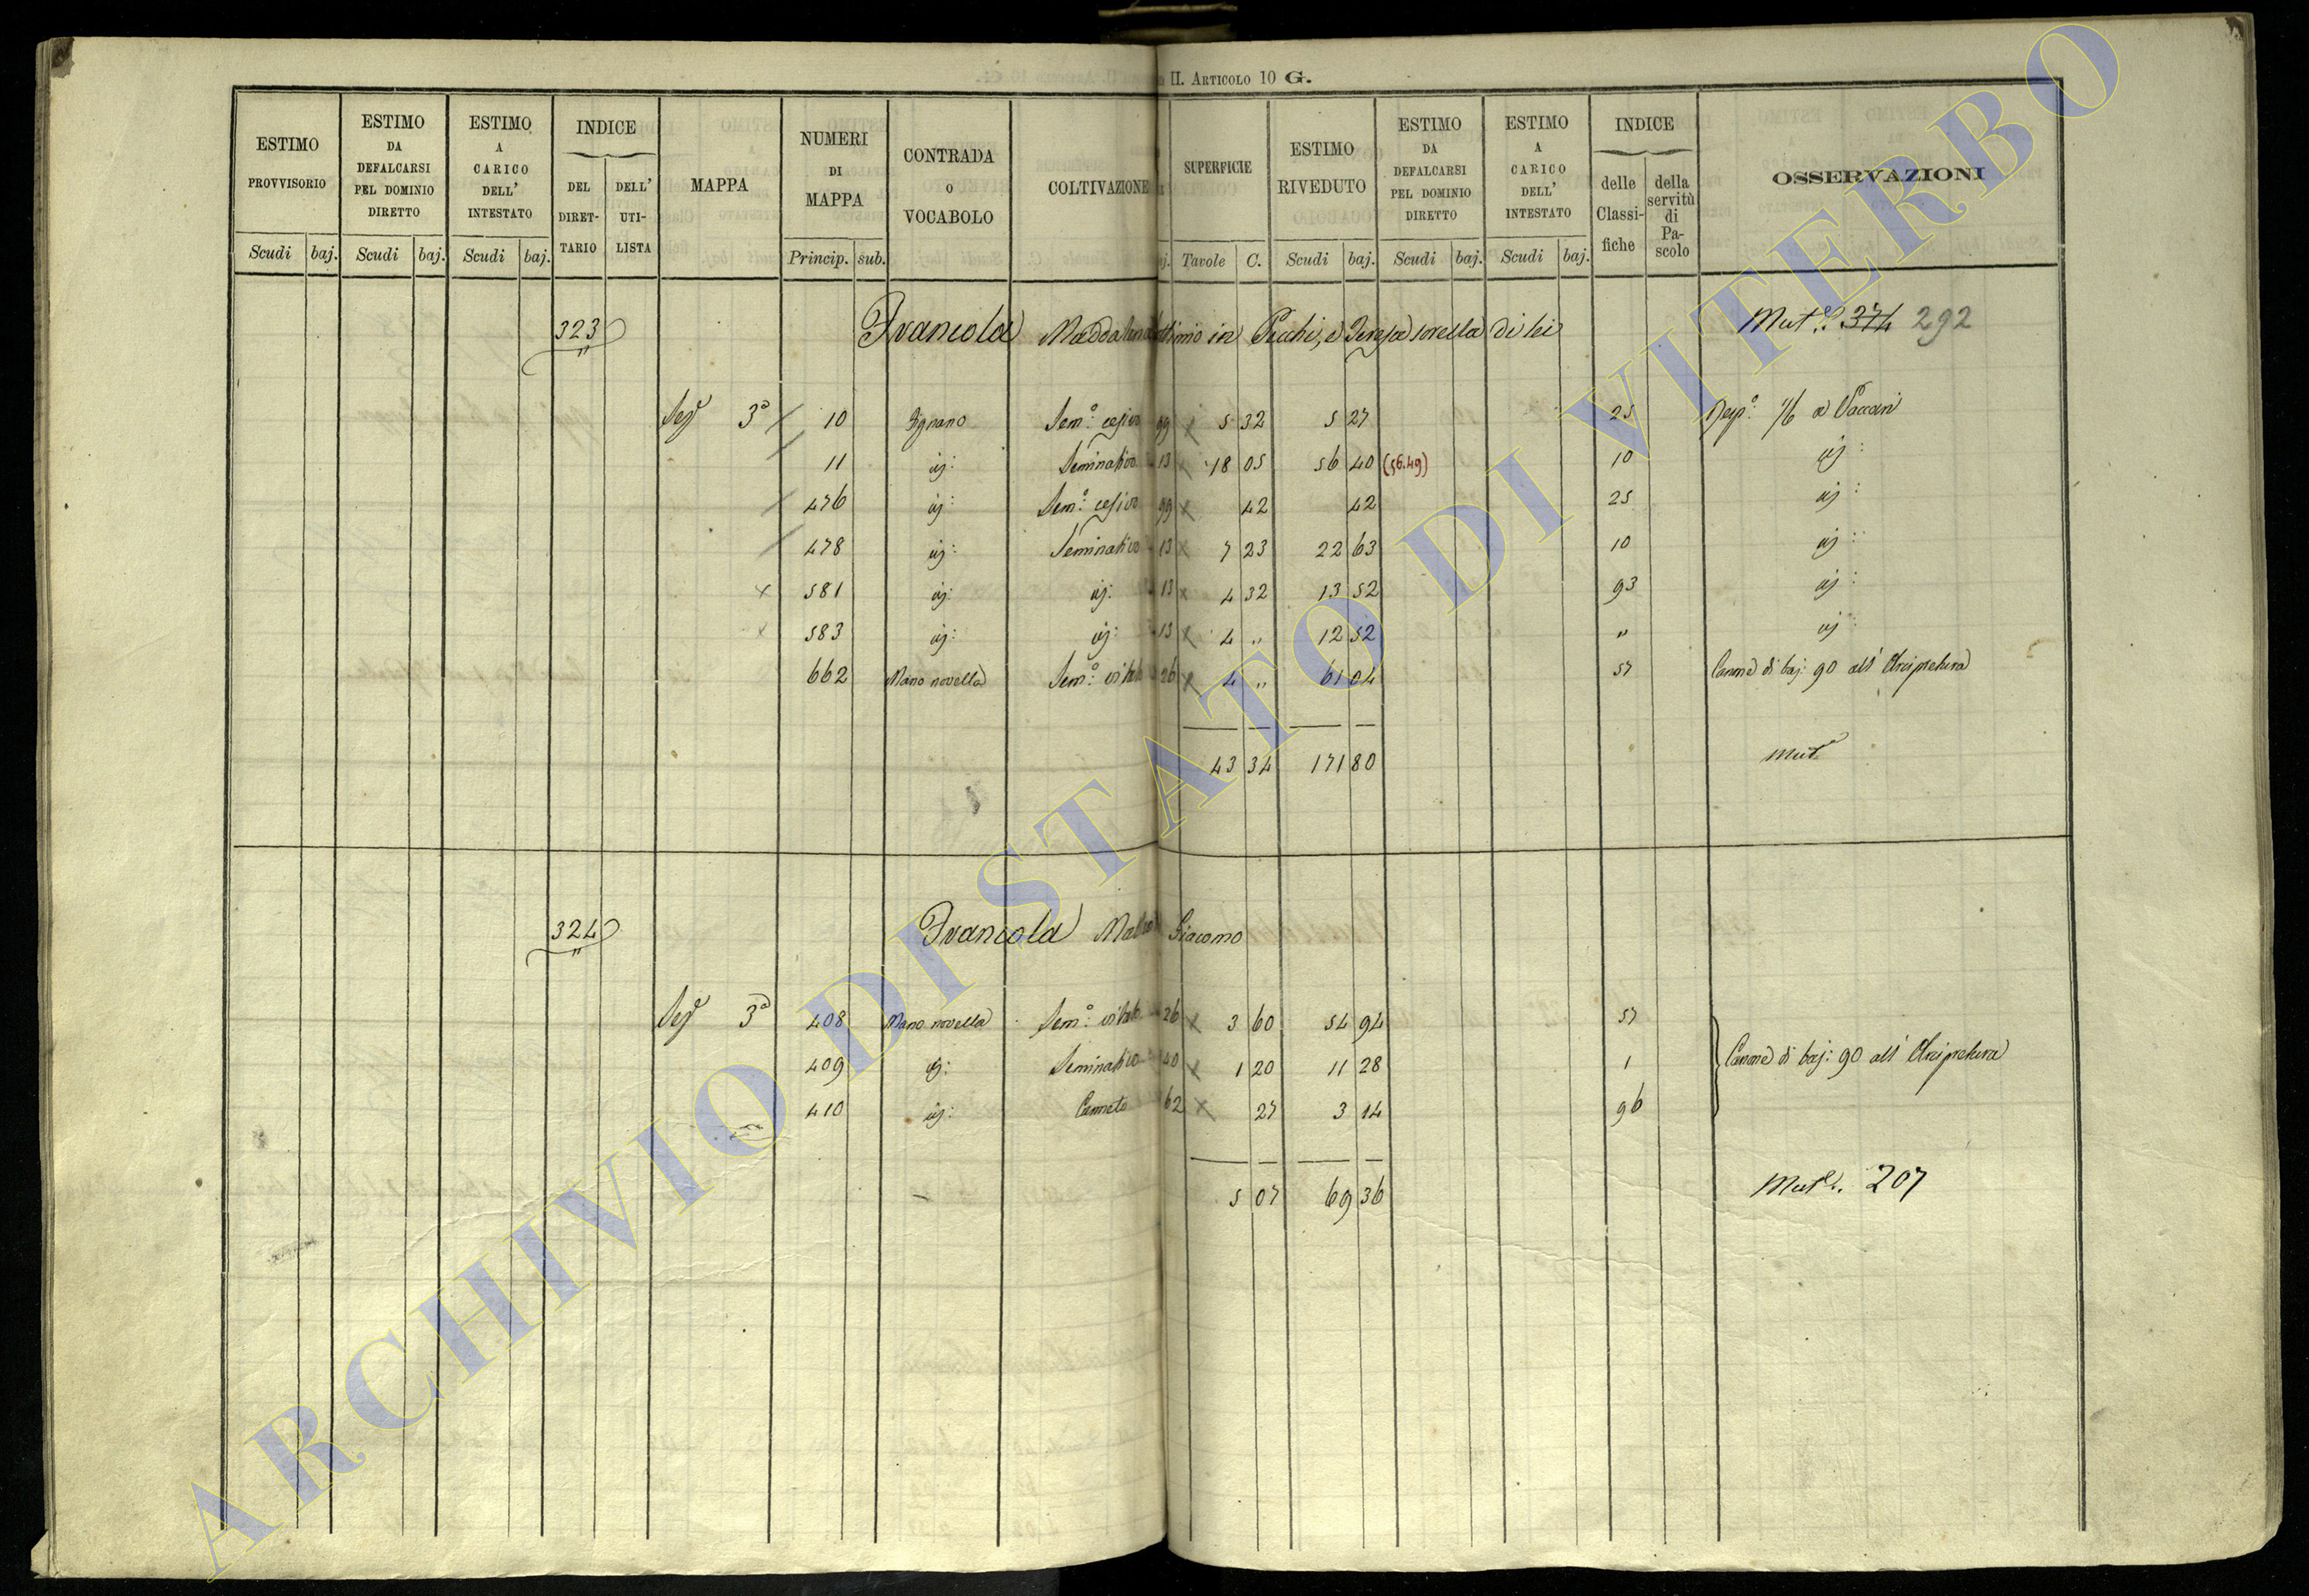 II. Articolo 10 G.
ESTIMO PROVVISORIO Scudi baj.
ESTIMO DA DEFALCARSI PEL DOMINIO DIRETTO Scudi baj.
ESTIMO A CARICO DELL' INTESTATO Scudi baj.
INDICE DEL DIRET-TARIO DELL' UTI-LISTA
MAPPA
NUMERI DI MAPPA Princip. sub.
CONTRADA O VOCABOLO
COLTIVAZIONE
SUPERFICIE Tavole C.
ESTIMO RIVEDUTO Scudi baj.
ESTIMO DA DEFALCARSI PEL DOMINIO DIRETTO Scudi baj.
ESTIMO A CARICO DELL' INTESTATO Scudi baj.
INDICE delle Classi-fiche della servitù di Pa-scolo
OSSERVAZIONI
323 Maddalena in Picchi, e Teresa sorella di lei Mut. 374 292
Sez. 3a 10 Sem.o 99 5 32 5 27 25 1/6 a Vaccari
11 Seminativo 13 18 05 56 40 (56.49) 10
476 Sem.o 99 42 42 25
478 Seminativo 13 7 23 22 63 10
581 13 4 32 13 52 93
583 13 4 „ 12 52 „
662 Mano novella Sem.o vitato 26 4 „ 61 04 57 Canone di baj: 90 all' Arcipretura
43 34 171 80 Mut.
324 Giacomo
Sez. 3a 408 Mano novella Sem.o vitato 26 3 60 54 94 57
409 Seminativo 40 1 20 11 28 1 Canone di baj: 90 all' Arcipretura
410 Canneto 62 27 3 14 96
5 07 69 36 Mut. 207
ARCHIVIO DI STATO DI VITERBO